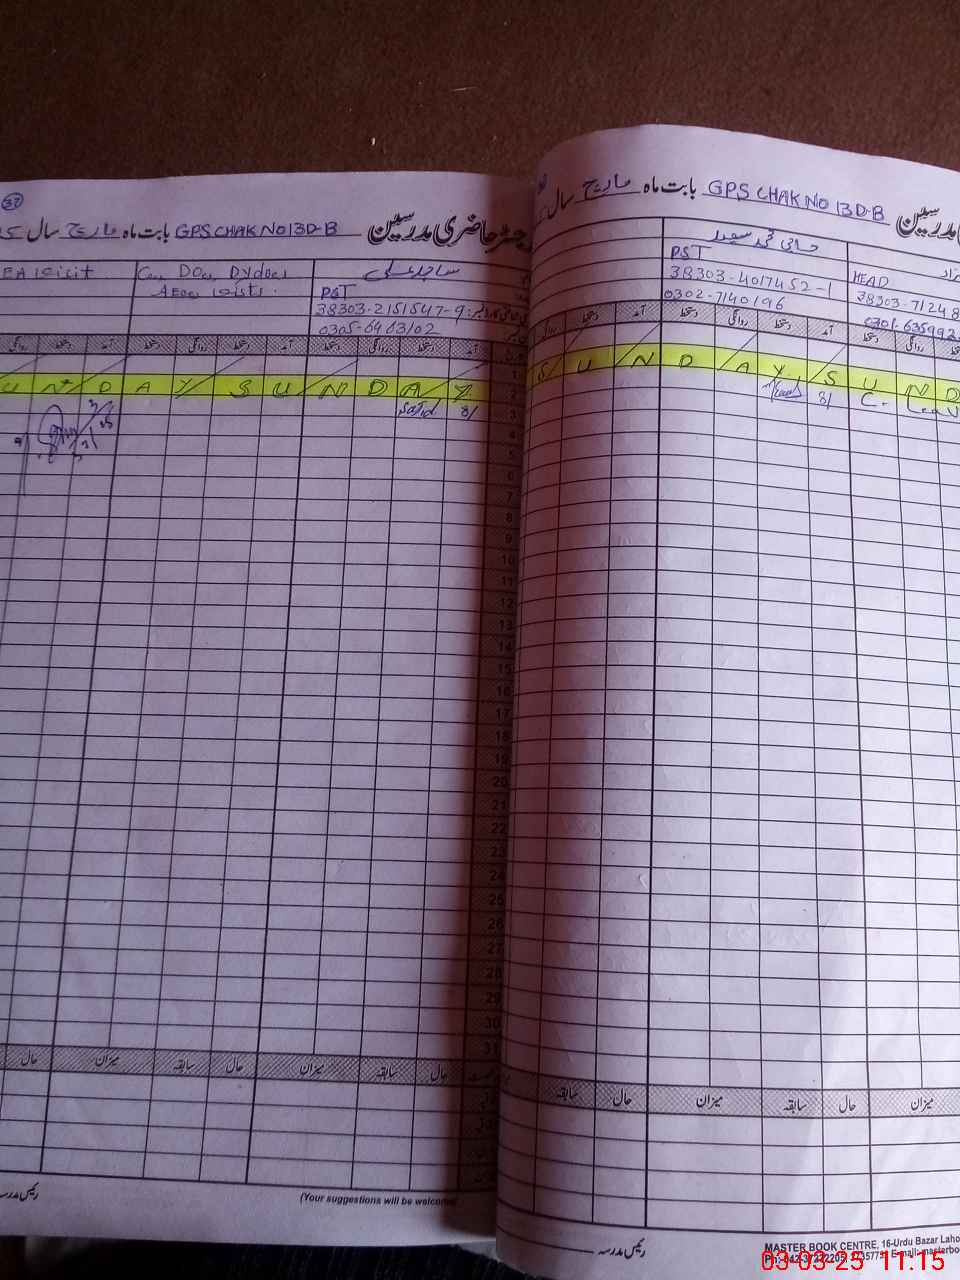 37
رجسٹر حاضری مدرسین GPS CHAK NO 13D-B بابت ماہ مارچ سال
ساجد علی
PST
38303-2151547-9
0305-6963102
آمد دستخط روانگی آمد دستخط روانگی
SUNDAY SUNDAY
Sajid 8/
1
2
3
4
5
6
7
8
9
10
11
12
13
14
15
16
17
18
19
20
21
22
23
24
25
26
27
28
29
30
31
حال سابقہ میزان حال سابقہ میزان حال
(Your suggestions will be welcome
رئیس مدرسہ
GPS CHAK NO 13D-B بابت ماہ مارچ سال
HEAD
حاجی محمد سعید
PST
38303-4017452-1
0302-7140196
آمد دستخط روانگی آمد دستخط روانگی
SUNDAY SUND
8/
میزان حال سابقہ میزان حال سابقہ
رئیس مدرسہ
MASTER BOOK CENTRE, 16-Urdu Bazar Laho
03 03 25 11:15